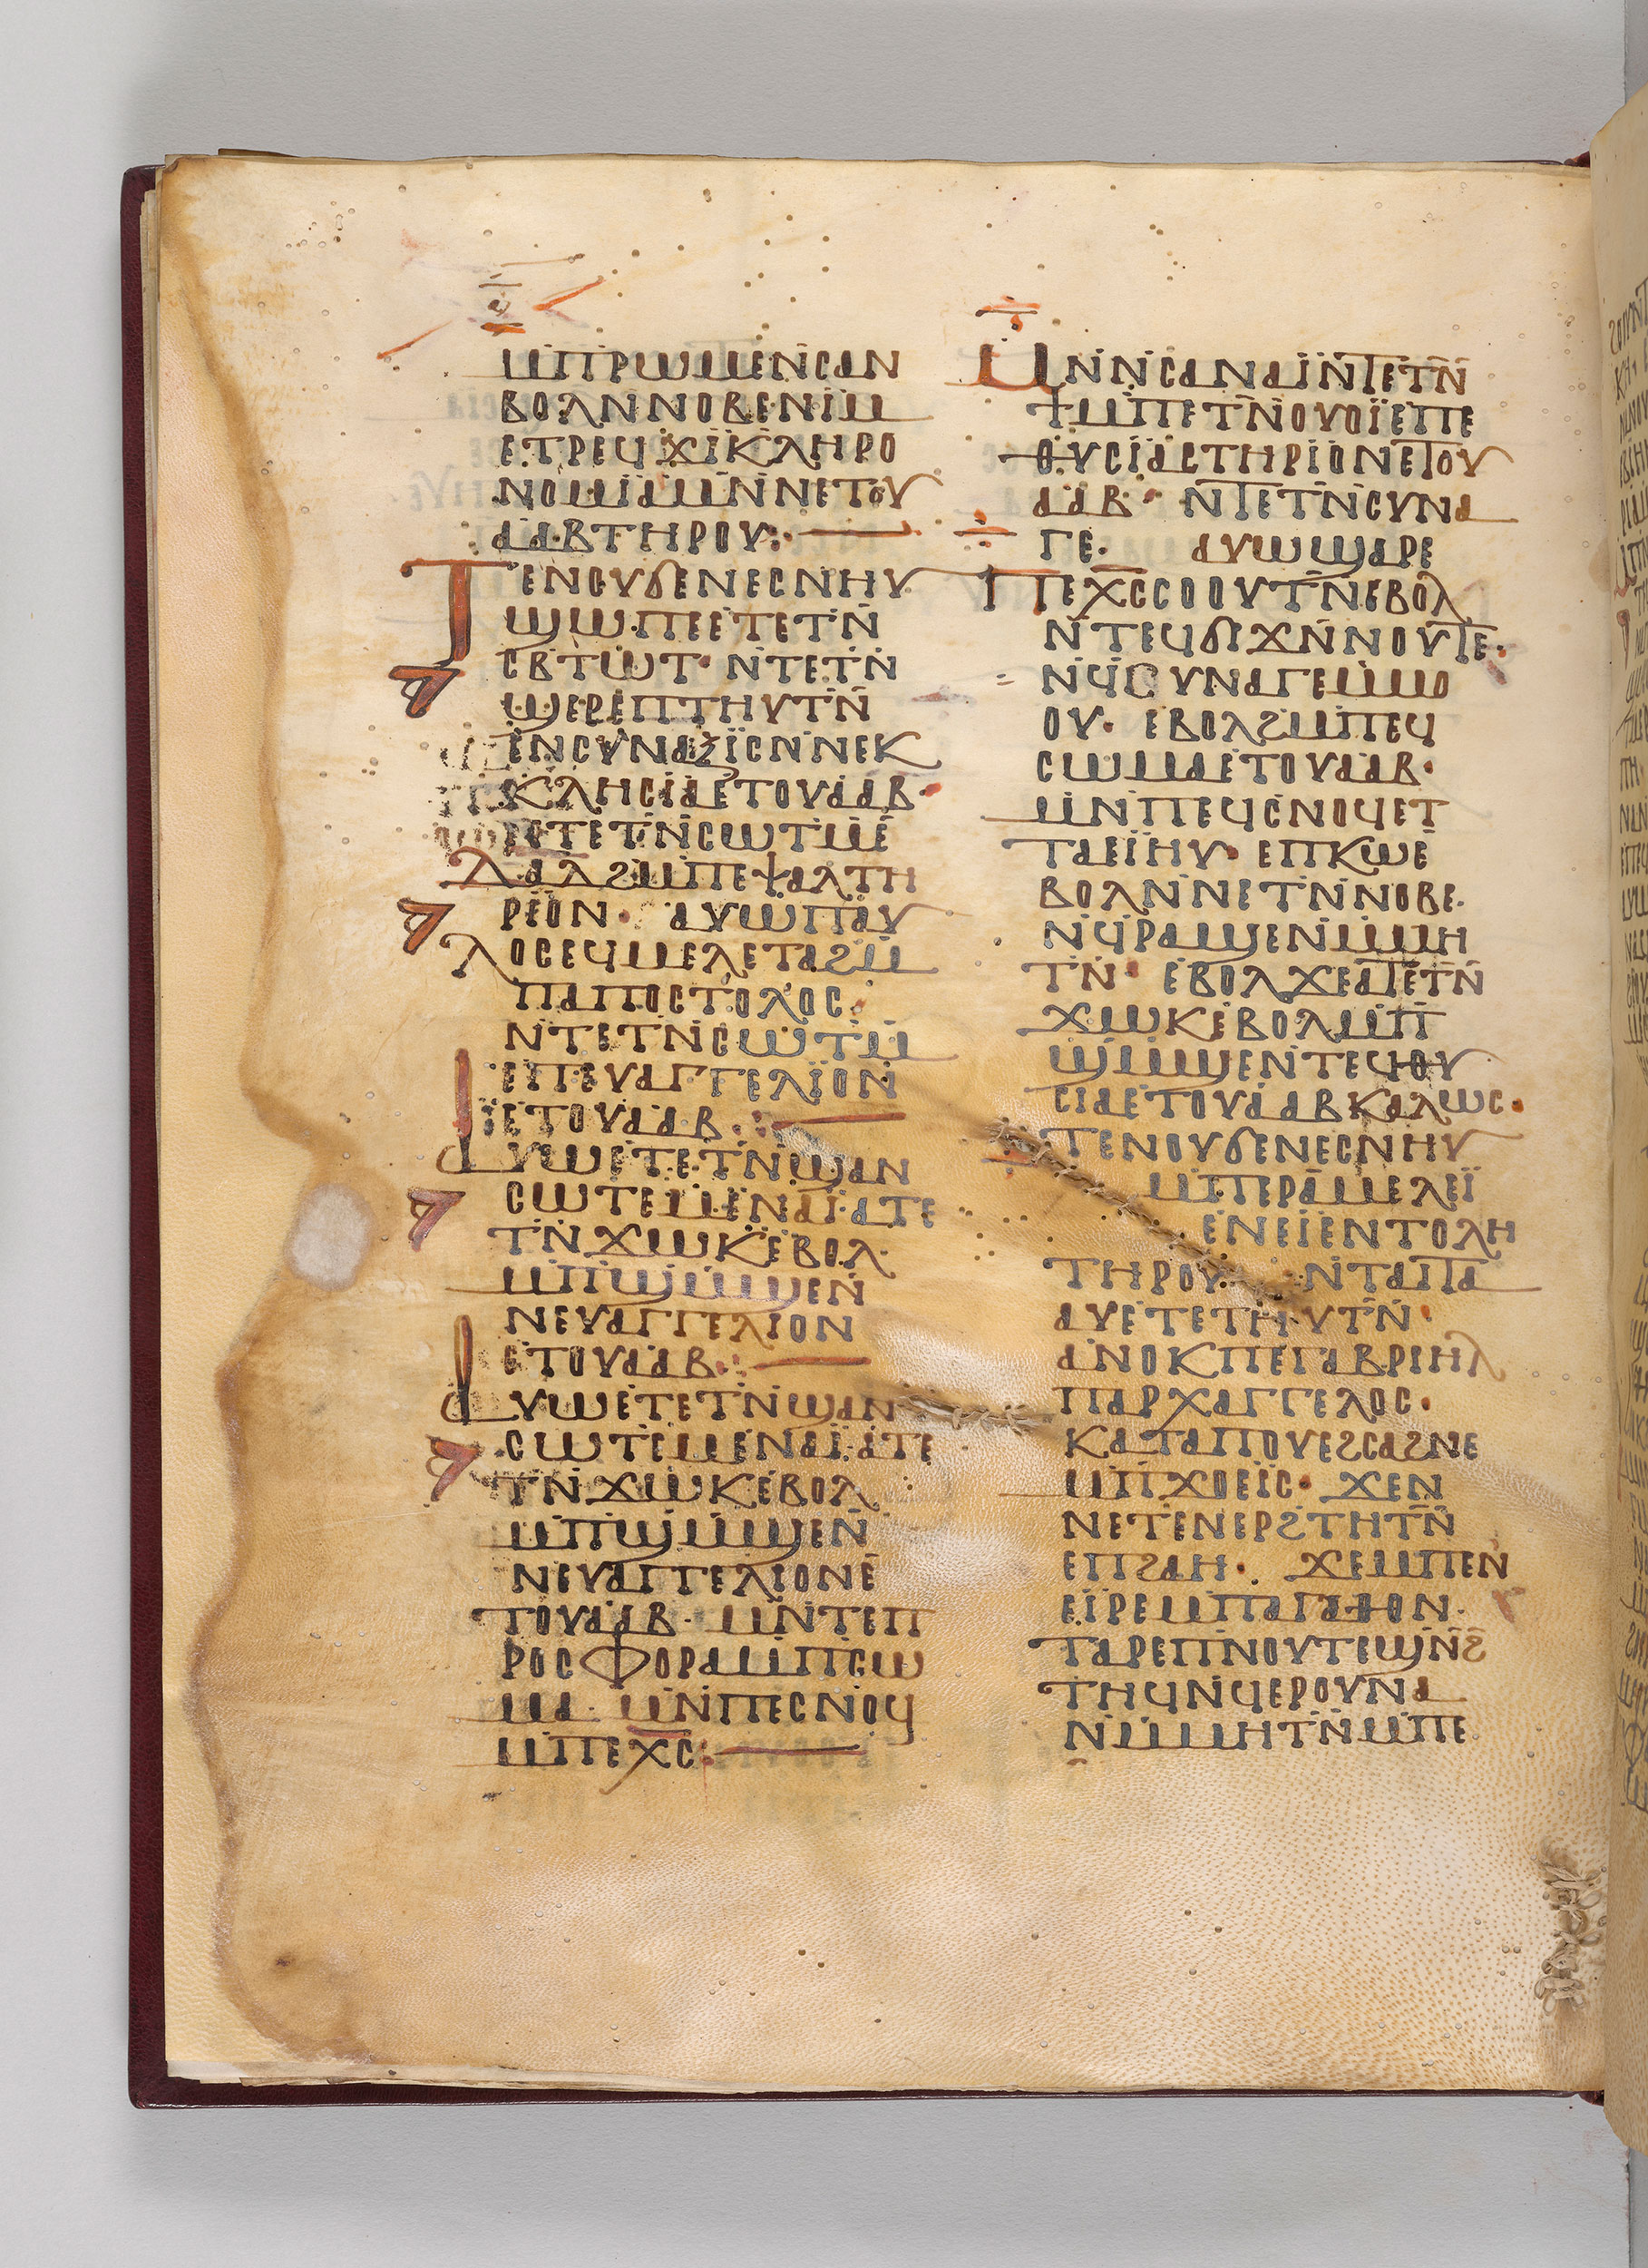 ⲙⲡⲣⲱⲙⲉⲛⲥⲁⲛ
ⲃⲟⲗⲛⲛⲟⲃⲉⲛⲓⲙ
ⲉⲧⲣⲉϥϫⲓⲕⲗⲏⲣⲟ
ⲛⲟⲙⲓⲁⲙⲛⲛⲉⲧⲟⲩ
ⲁⲁⲃⲧⲏⲣⲟⲩ:
ⲧⲉⲛⲟⲩϭⲉⲛⲉⲥⲛⲏⲩ
ϣⲱⲡⲉⲉⲧⲉⲧⲛ̄
ⲥⲃⲧⲱⲧ· ⲛⲧⲉⲧⲛ
ϣⲉⲣⲉⲡⲧⲏⲩⲧⲛ̄
ⲉⲛⲥⲩⲛⲁⲝⲓⲥⲛⲛⲉⲕ
ⲕⲗⲏⲥⲓⲁⲉⲧⲟⲩⲁⲁⲃ·
ⲉⲧⲉⲧⲛⲥⲱⲧⲙⲉ
ⲇⲁⲇϩⲙⲡⲉⲯⲁⲗⲧⲏ
ⲣⲓⲟⲛ· ⲁⲩⲱⲡⲁⲩ
ⲗⲟⲥⲉϥⲙⲉⲗⲉⲧⲁϩⲙ
ⲡⲁⲡⲟⲥⲧⲟⲗⲟⲥ·
ⲛⲧⲉⲧⲛⲥⲱⲧⲙ
ⲉⲡⲉⲩⲁⲅⲅⲉⲗⲓⲟⲛ
ⲉⲧⲟⲩⲁⲁⲃ:
ⲁⲩⲱⲉⲧⲉⲧⲛϣⲁⲛ
ⲥⲱⲧⲉⲙⲉⲛⲁⲓ·ⲁⲧⲉ
ⲧⲛϫⲱⲕⲉⲃⲟⲗ
ⲙⲡϣⲙϣⲉⲛ
ⲛⲉⲩⲁⲅⲅⲉⲗⲓⲟⲛ
ⲉⲧⲟⲩⲁⲁⲃ:
ⲁⲩⲱⲉⲧⲉⲧⲛϣⲁⲛ
ⲥⲱⲧⲉⲙⲉⲛⲁⲓ·ⲁⲧⲉ
ⲧⲛϫⲱⲕⲉⲃⲟⲗ
ⲙⲡϣⲙϣⲉⲛ
ⲛⲉⲩⲁⲅⲅⲉⲗⲓⲟⲛⲉ
ⲧⲟⲩⲁⲁⲃ· ⲙⲛⲧⲉⲡ
ⲣⲟⲥⲫⲟⲣⲁⲙⲡⲥⲱ
ⲙⲁ· ⲙⲛⲡⲉⲥⲛⲟϥ
ⲙⲡⲉⲭ̄ⲥ̄:
ⲙⲛⲛⲥⲁⲛⲁⲓⲛⲧⲉⲧⲛ̄
ϯⲙⲡⲉⲧⲛⲟⲩⲟⲓⲉⲡⲉ
ⲑⲩⲥⲓⲁⲥⲧⲏⲣⲓⲟⲛⲉⲧⲟⲩ
ⲁⲁⲃ· ⲛⲧⲉⲧⲛⲥⲩⲛⲁ
ⲅⲉ· ⲁⲩⲱϣⲁⲣⲉ
ⲡⲉⲭ̄ⲥ̄ⲥⲟⲟⲩⲧⲛⲉⲃⲟⲗ
ⲛⲧⲉϥϭⲓϫⲛⲛⲟⲩⲧⲉ·
ⲛϥⲥⲩⲛⲁⲅⲉⲙⲙⲟ
ⲟⲩ· ⲉⲃⲟⲗϩⲙⲡⲉϥ
ⲥⲱⲙⲁⲉⲧⲟⲩⲁⲁⲃ·
ⲙⲛⲡⲉϥⲥⲛⲟϥⲉⲧ
ⲧⲁⲉⲓⲏⲩ· ⲉⲡⲕⲱⲉ
ⲃⲟⲗⲛⲛⲉⲧⲛⲛⲟⲃⲉ·
ⲛϥⲣⲁϣⲉⲛⲙⲙⲏ
ⲧⲛ· ⲉⲃⲟⲗϫⲉⲁⲧⲉⲧⲛ̄
ϫⲱⲕⲉⲃⲟⲗⲙⲡ
ϣⲙϣⲉⲛⲧⲉϥⲑⲩ
ⲥⲓⲁⲉⲧⲟⲩⲁⲁⲃⲕⲁⲗⲱⲥ·
ⲧⲉⲛⲟⲩϭⲉⲛⲉⲥⲛⲏⲩ
ⲙⲡⲉⲣⲁⲙⲉⲗⲉⲓ
ⲉⲛⲉⲓⲉⲛⲧⲟⲗⲏ
ⲧⲏⲣⲟⲩ· ⲛⲧⲁⲡⲁ
ⲁⲩⲉⲧⲉⲧⲏⲩⲧⲛ·
ⲁⲛⲟⲕⲡⲉⲅⲁⲃⲣⲓⲏⲗ
ⲡⲁⲣⲭⲁⲅⲅⲉⲗⲟⲥ·
ⲕⲁⲧⲁⲡⲟⲩⲉϩⲥⲁϩⲛⲉ
ⲙⲡϫⲟⲉⲓⲥ· ϫⲉⲛ
ⲛⲉⲧⲉⲛⲉⲣϩⲧⲏⲧⲛ̄
ⲉⲡϩⲁⲏ· ϫⲉⲙⲡⲉⲛ
ⲉⲓⲣⲉⲙⲡⲁⲅⲁⲑⲟⲛ·
ⲧⲁⲣⲉⲡⲛⲟⲩⲧⲉϣⲛϩ
ⲧⲏϥⲛϥⲉⲣⲟⲩⲛⲁ
ⲛⲙⲙⲏⲧⲛⲙⲡⲉ